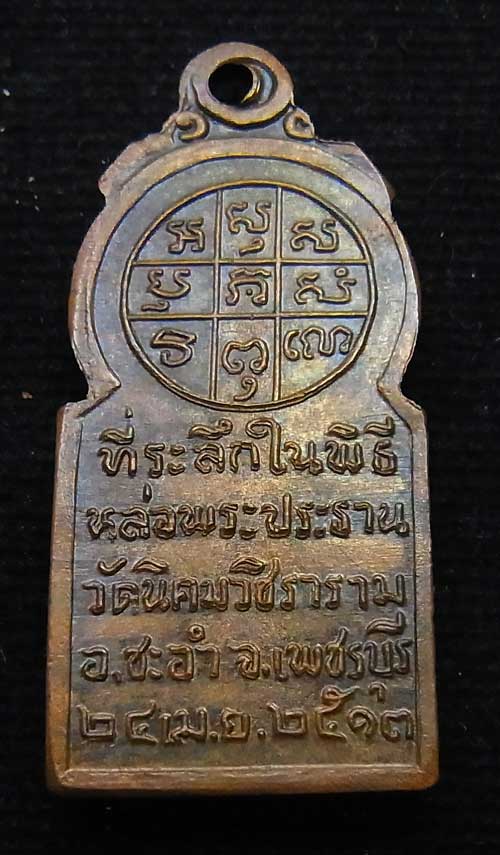 ที่ระลึกในพิธี
หล่อพระประธาน
วัดนิคมวชิราราม
อ.ชะอำ จ.เพชรบุรี
๒๔ เม.ย. ๒๕๑๓